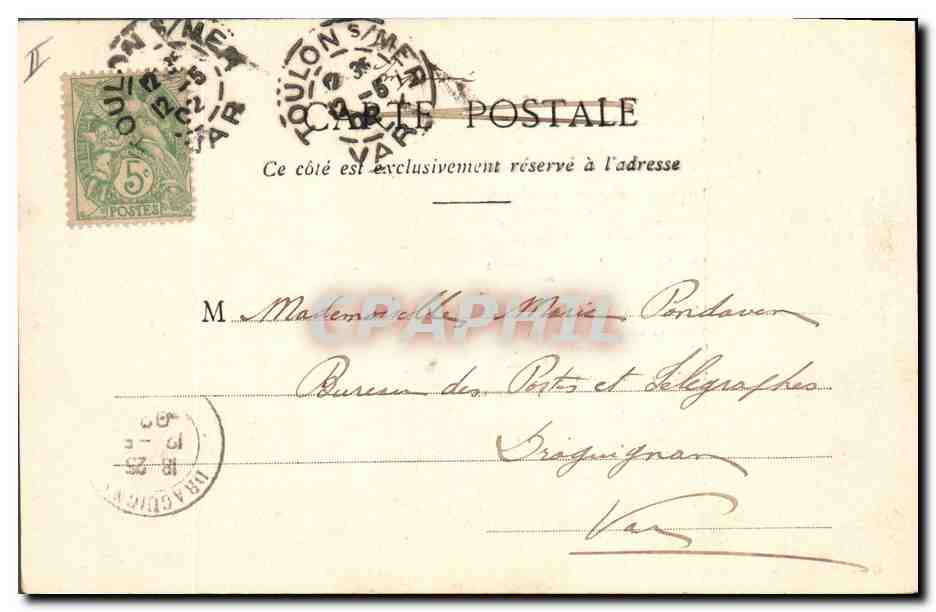 II
TOULON S/MER
VAR
TOULON S/MER
VAR
5c
POSTES
CARTE POSTALE
Ce côté est exclusivement réservé à l'adresse
M Mademoiselle Marie Pondaven
Bureau des Postes et Télégraphes
Draguignan
Var
CPAPHIL
DRAGUIGN